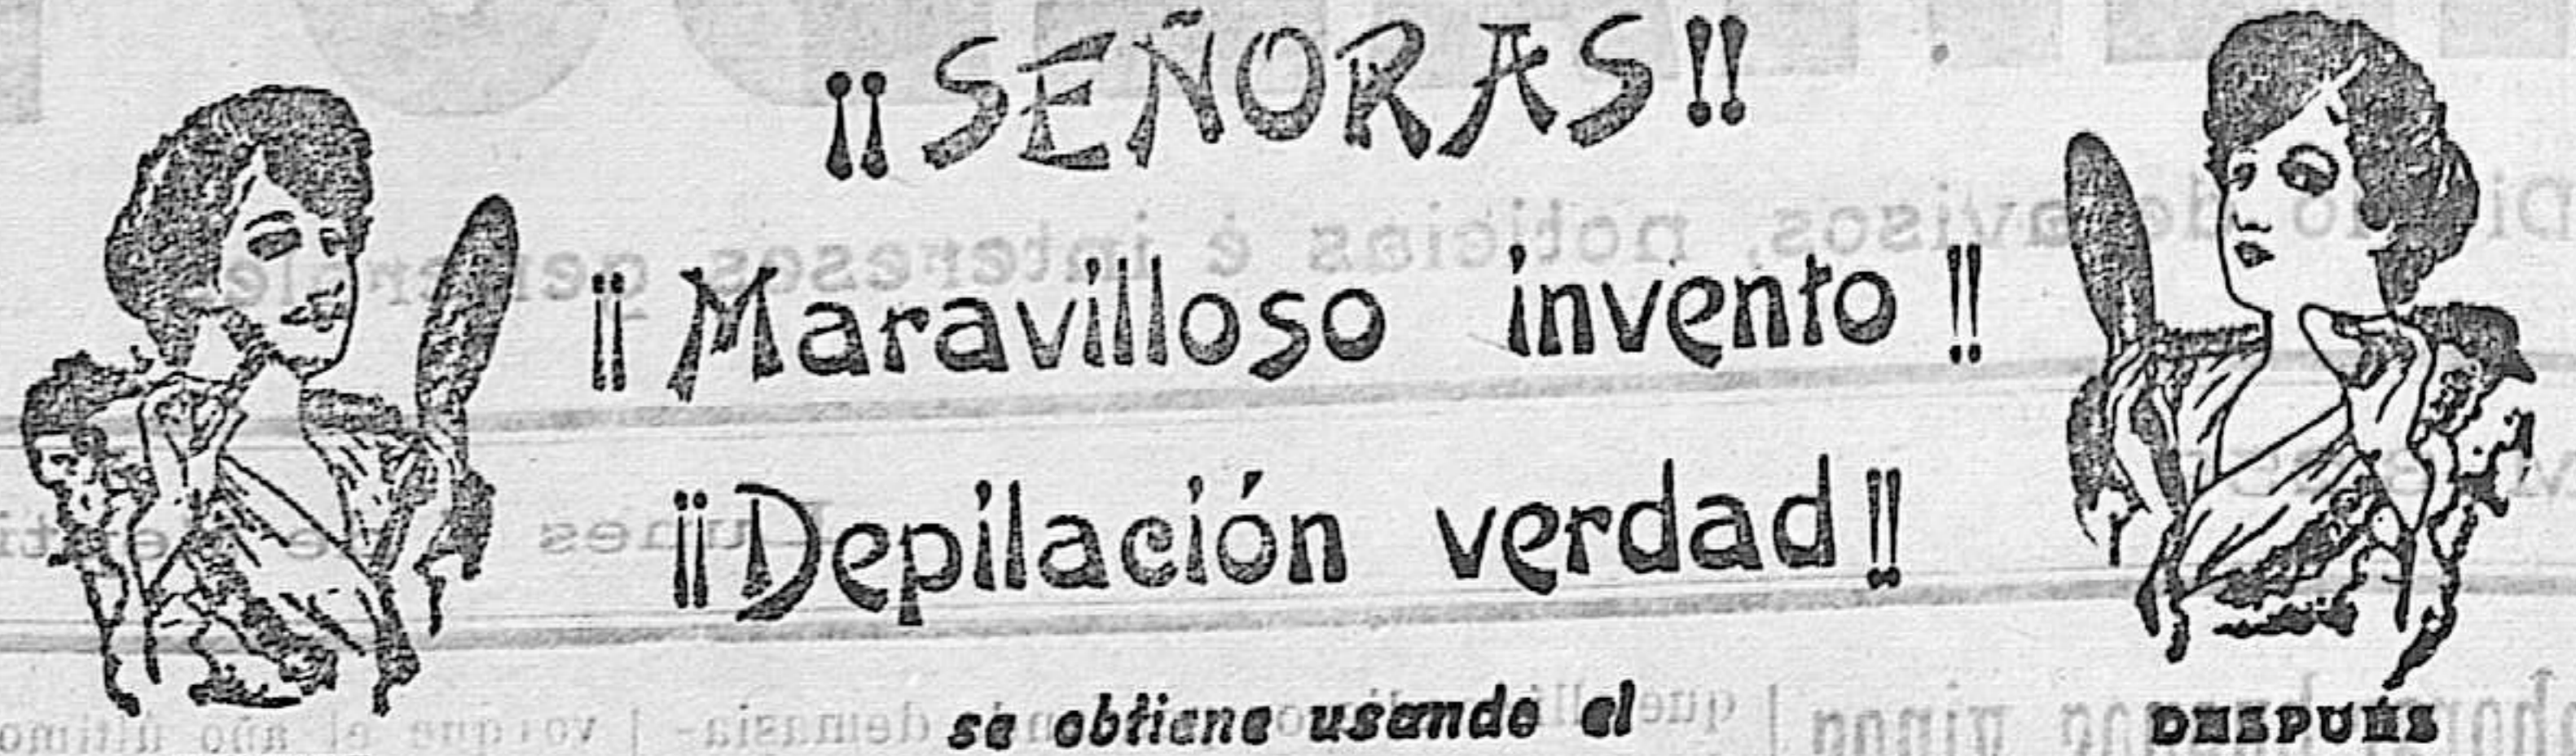 ¡¡SEÑORAS!!
¡¡Maravilloso invento!!
¡¡Depilación verdad!!
se obtiene usando el
DESPUÉS